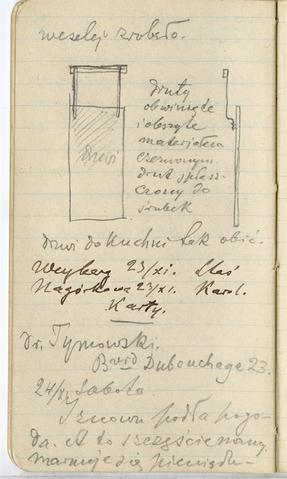 weselej zrobiło.
druty
obwinięte
i obszyte
materjałem
czerwonym.
drut spłasz-
czony do
śrubek
drzwi
drzwi do kuchni tak obić.
Weyberg 23/XI. Staś
Nagórkowa 23/XI. Karol.
Karty.
Dr. Tymowski.
Bvard Dubouchage 23.
24/XI Sobota
Znowu podła pogo-
da. A to szczęście mamy,
marnuje się pieniądz-